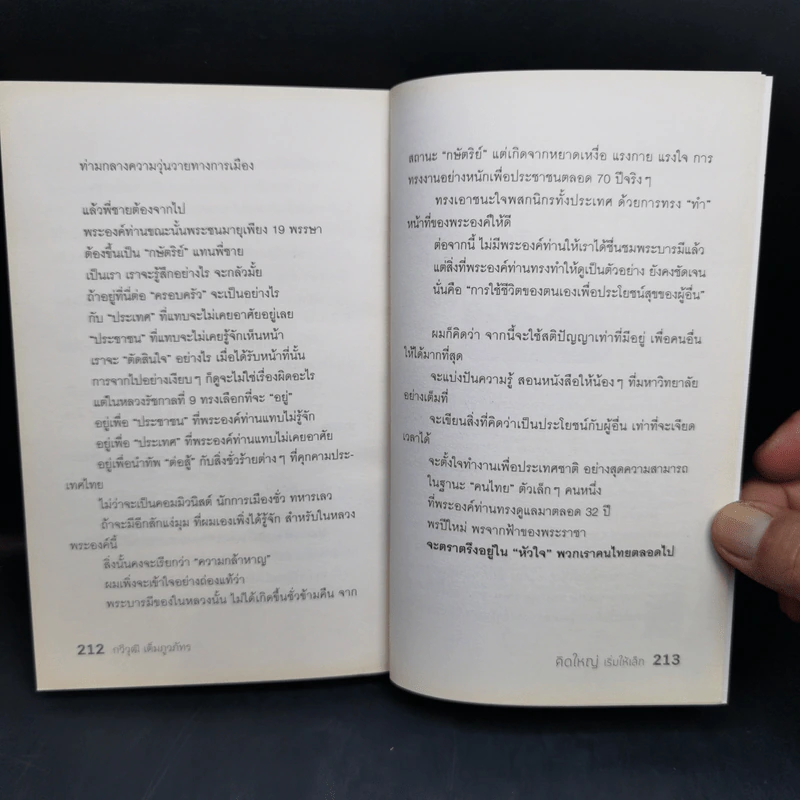 ท่ามกลางความวุ่นวายทางการเมือง
แล้วพี่ชายต้องจากไป
พระองค์ท่านขณะนั้นพระชนมายุเพียง 19 พรรษา
ต้องขึ้นเป็น “กษัตริย์” แทนพี่ชาย
เป็นเรา เราจะรู้สึกอย่างไร จะกลัวมั้ย
ถ้าอยู่ที่นี่ต่อ “ครอบครัว” จะเป็นอย่างไร
กับ “ประเทศ” ที่แทบจะไม่เคยอาศัยอยู่เลย
“ประชาชน” ที่แทบจะไม่เคยรู้จักเห็นหน้า
เราจะ “ตัดสินใจ” อย่างไร เมื่อได้รับหน้าที่นั้น
การจากไปอย่างเงียบๆ ก็ดูจะไม่ใช่เรื่องผิดอะไร
แต่ในหลวงรัชกาลที่ 9 ทรงเลือกที่จะ “อยู่”
อยู่เพื่อ “ประชาชน” ที่พระองค์ท่านแทบไม่รู้จัก
อยู่เพื่อ “ประเทศ” ที่พระองค์ท่านแทบไม่เคยอาศัย
อยู่เพื่อนำทัพ “ต่อสู้” กับสิ่งชั่วร้ายต่างๆ ที่คุกคามประ-
เทศไทย
ไม่ว่าจะเป็นคอมมิวนิสต์ นักการเมืองชั่ว ทหารเลว
ถ้าจะมีอีกสักแง่มุม ที่ผมเองเพิ่งได้รู้จัก สำหรับในหลวง
พระองค์นี้
สิ่งนั้นคงจะเรียกว่า “ความกล้าหาญ”
ผมเพิ่งจะเข้าใจอย่างถ่องแท้ว่า
พระบารมีของในหลวงนั้น ไม่ได้เกิดขึ้นชั่วข้ามคืน จาก
212 กวีวุฒิ เต็มภูวภัทร
สถานะ “กษัตริย์” แต่เกิดจากหยาดเหงื่อ แรงกาย แรงใจ การ
ทรงงานอย่างหนักเพื่อประชาชนตลอด 70 ปีจริงๆ
ทรงเอาชนะใจพสกนิกรทั้งประเทศ ด้วยการทรง “ทำ”
หน้าที่ของพระองค์ให้ดี
ต่อจากนี้ ไม่มีพระองค์ท่านให้เราได้ชื่นชมพระบารมีแล้ว
แต่สิ่งที่พระองค์ท่านทรงทำให้ดูเป็นตัวอย่าง ยังคงชัดเจน
นั่นคือ “การใช้ชีวิตของตนเองเพื่อประโยชน์สุขของผู้อื่น”
ผมก็คิดว่า จากนี้จะใช้สติปัญญาเท่าที่มีอยู่ เพื่อคนอื่น
ให้ได้มากที่สุด
จะแบ่งปันความรู้ สอนหนังสือให้น้องๆ ที่มหาวิทยาลัย
อย่างเต็มที่
จะเขียนสิ่งที่คิดว่าเป็นประโยชน์กับผู้อื่น เท่าที่จะเจียด
เวลาได้
จะตั้งใจทำงานเพื่อประเทศชาติ อย่างสุดความสามารถ
ในฐานะ “คนไทย” ตัวเล็กๆ คนหนึ่ง
ที่พระองค์ท่านทรงดูแลมาตลอด 32 ปี
พรปีใหม่ พรจากฟ้าของพระราชา
จะตราตรึงอยู่ใน “หัวใจ” พวกเราคนไทยตลอดไป
คิดใหญ่ เริ่มให้เล็ก 213